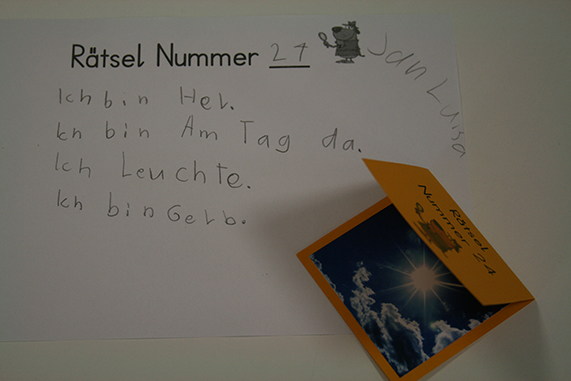 Rätsel Nummer 24
Jan Luisa
Ich bin Hel.
Ich bin Am Tag da.
Ich Leuchte.
Ich bin Gelb.
Rätsel
Nummer 24